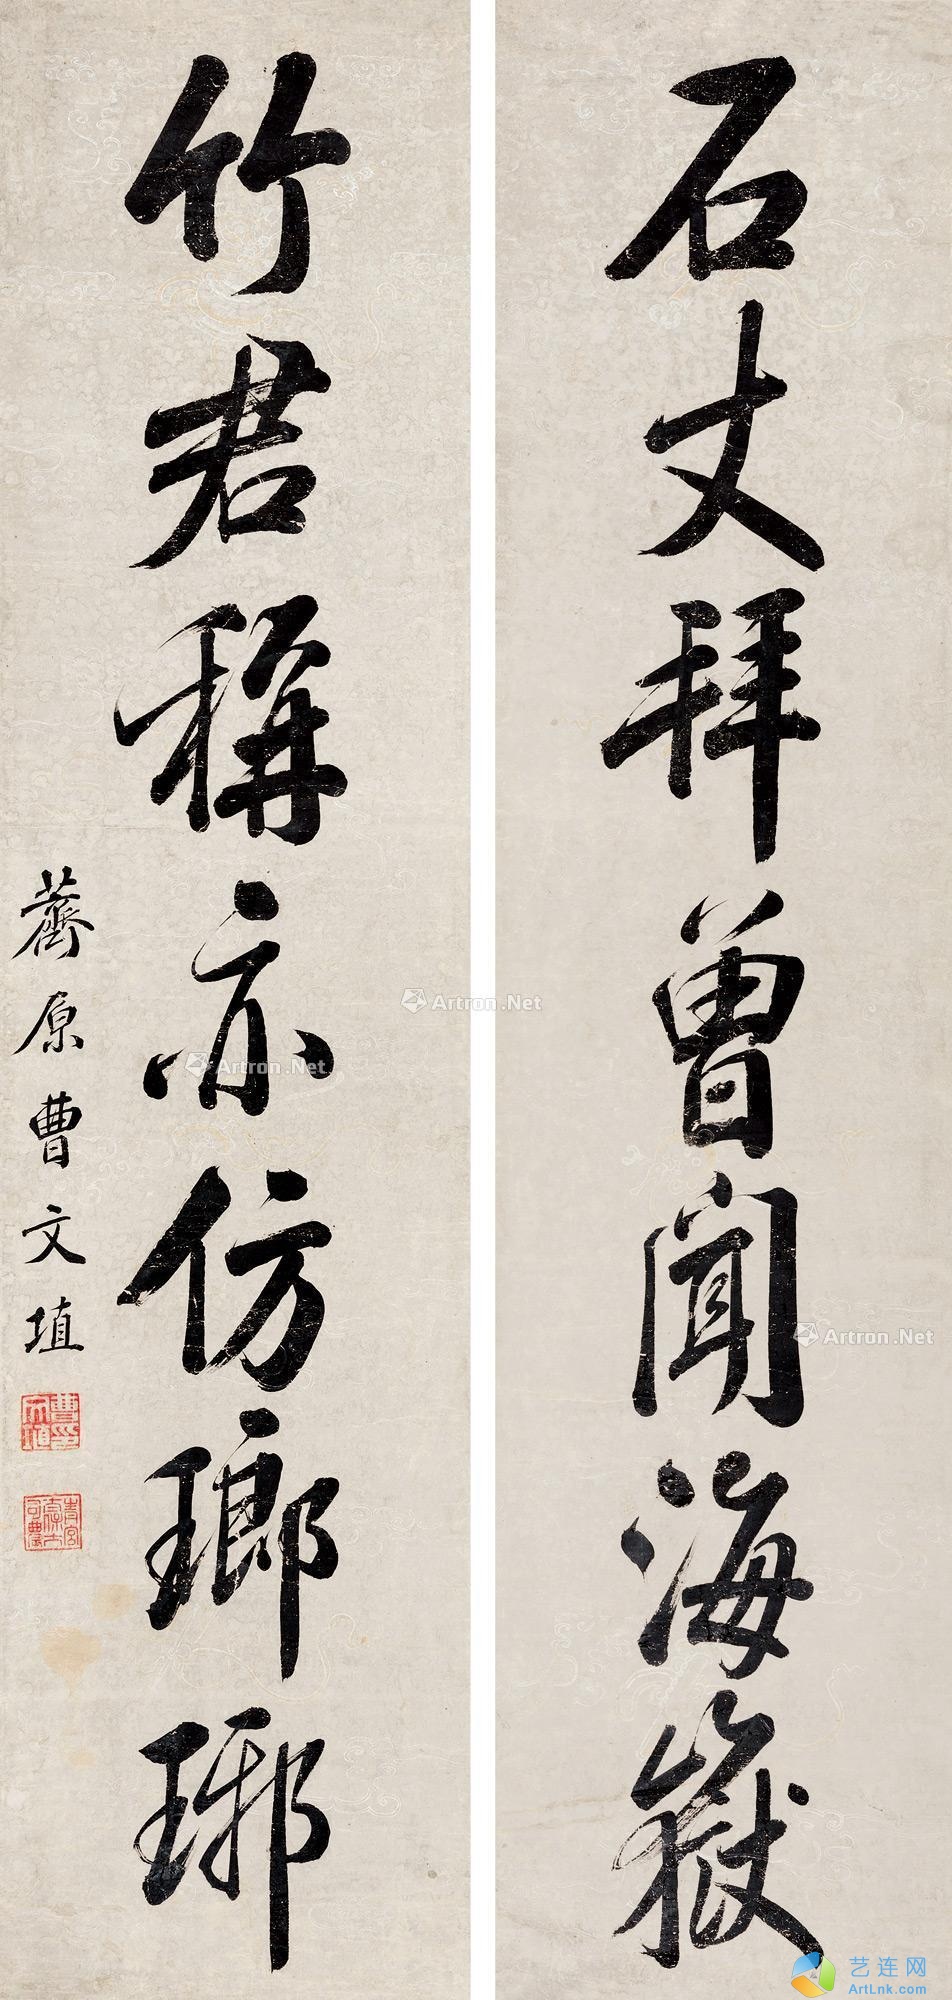 石丈拜曾聞海嶽
竹君稱亦仿瑯琊
薺原曹文埴
Artron.Net
Artron.Net
Artron.Net
艺连网
ArtLnk.com